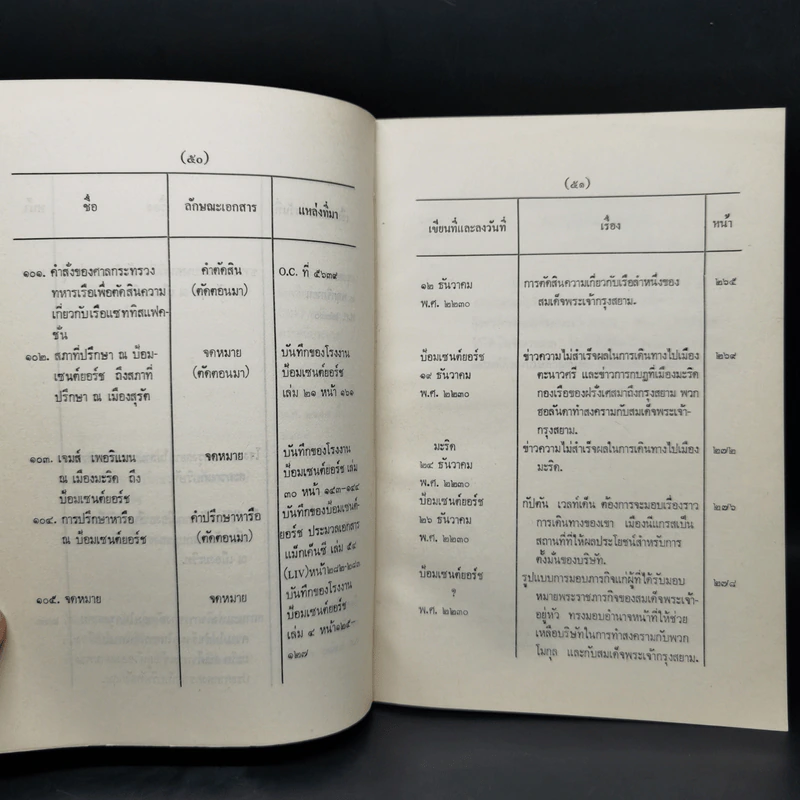 (๕๐)
ชื่อ
ลักษณะเอกสาร
แหล่งที่มา
๑๐๑. คำสั่งของศาลกระทรวง
ทหารเรือเพื่อตัดสินความ
เกี่ยวกับเรือแซททิสแฟค-
ชั่น
คำตัดสิน
(ตัดตอนมา)
O.C. ที่ ๕๖๓๙
๑๐๒. สภาที่ปรึกษา ณ ป้อม-
เซนต์ยอร์ช ถึงสภาที่
ปรึกษา ณ เมืองสุรัต
จดหมาย
(ตัดตอนมา)
บันทึกของโรงงาน
ป้อมเซนต์ยอร์ช
เล่ม ๒๑ หน้า ๑๖๑
๑๐๓. เจมส์ เพอริแมน
ณ เมืองมะริด ถึง
ป้อมเซนต์ยอร์ช
จดหมาย
บันทึกของโรงงาน
ป้อมเซนต์ยอร์ช เล่ม
๓๐ หน้า ๑๔๓-๑๔๔
๑๐๔. การปรึกษาหารือ
ณ ป้อมเซนต์ยอร์ช
คำปรึกษาหารือ
(ตัดตอนมา)
บันทึกของป้อมเซนต์-
ยอร์ช ประมวลเอกสาร
แม็กเค็นซี เล่ม ๕๔
(LIV)หน้า๒๘๒-๒๘๓
๑๐๕. จดหมาย
จดหมาย
บันทึกของโรงงาน
ป้อมเซนต์ยอร์ช
เล่ม ๔ หน้า๑๒๕-
๑๒๗
(๕๑)
เขียนที่และลงวันที่
เรื่อง
หน้า
๑๒ ธันวาคม
พ.ศ. ๒๒๓๐
การตัดสินความเกี่ยวกับเรือลำหนึ่งของ
สมเด็จพระเจ้ากรุงสยาม.
๒๖๕
ป้อมเซนต์ยอร์ช
๑๙ ธันวาคม
พ.ศ. ๒๒๓๐
ข่าวความไม่สำเร็จผลในการเดินทางไปเมือง
ตะนาวศรี และข่าวการกบฏที่เมืองมะริด
กองเรือของฝรั่งเศสมาถึงกรุงสยาม พวก
ฮอลันดาทำสงครามกับสมเด็จพระเจ้า-
กรุงสยาม.
๒๖๙
มะริด
๒๔ ธันวาคม
พ.ศ. ๒๒๓๐
ข่าวความไม่สำเร็จผลในการเดินทางไปเมือง
มะริด.
๒๗๒
ป้อมเซนต์ยอร์ช
๒๖ ธันวาคม
พ.ศ. ๒๒๓๐
กัปตัน เวลท์เด็น ต้องการจะมอบเรื่องราว
การเดินทางของเขา เมืองนีแกรสเป็น
สถานที่ที่ให้ผลประโยชน์สำหรับการ
ตั้งมั่นของบริษัท.
๒๗๖
ป้อมเซนต์ยอร์ช
?
พ.ศ. ๒๒๓๐
รูปแบบการมอบภารกิจแก่ผู้ที่ได้รับมอบ
หมายพระราชภารกิจของสมเด็จพระเจ้า-
อยู่หัว ทรงมอบอำนาจหน้าที่ให้ช่วย
เหลือบริษัทในการทำสงครามกับพวก
โมกุล และกับสมเด็จพระเจ้ากรุงสยาม.
๒๗๘